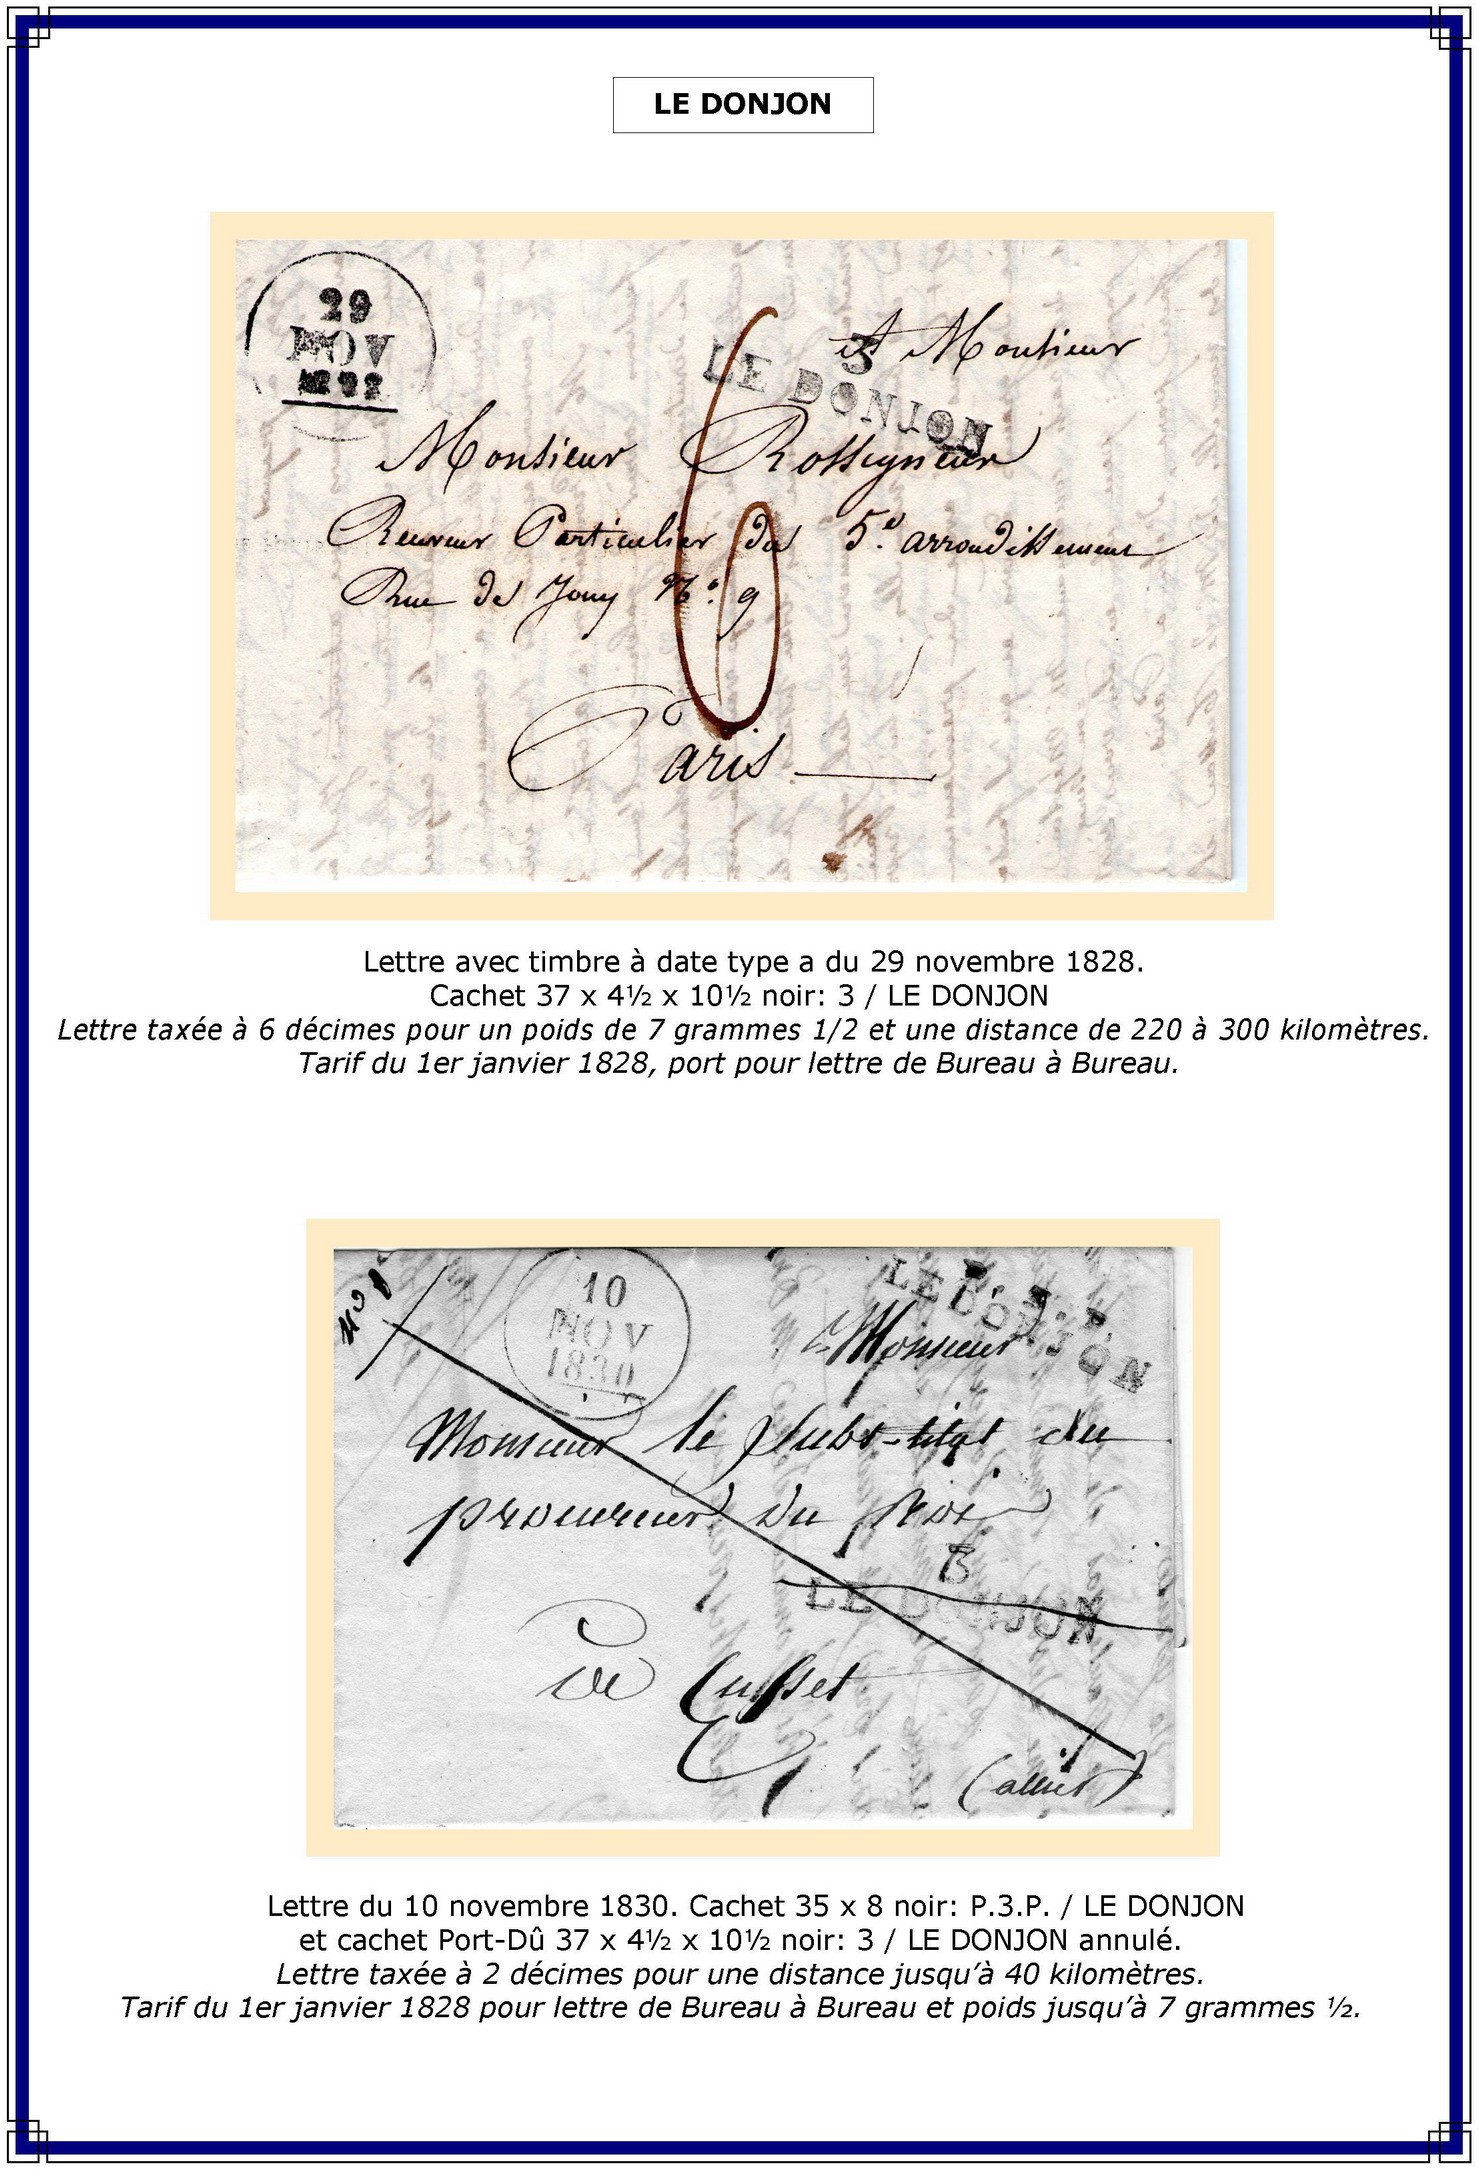 LE DONJON
29
NOV
1828
3
LE DONJON
A Monsieur
Monsieur Rossigneux
Receveur Particulier du 5.e arrondissement
Rue de Jouy N.o 9
6
Paris
Lettre avec timbre à date type a du 29 novembre 1828.
Cachet 37 x 4½ x 10½ noir: 3 / LE DONJON
Lettre taxée à 6 décimes pour un poids de 7 grammes 1/2 et une distance de 220 à 300 kilomètres.
Tarif du 1er janvier 1828, port pour lettre de Bureau à Bureau.
10
NOV
1830
P. 3. P.
LE DONJON
Monsieur
Monsieur le Substitut du
procureur du Roi
3
LE DONJON
De Cusset
(allier)
Lettre du 10 novembre 1830. Cachet 35 x 8 noir: P.3.P. / LE DONJON
et cachet Port-Dû 37 x 4½ x 10½ noir: 3 / LE DONJON annulé.
Lettre taxée à 2 décimes pour une distance jusqu’à 40 kilomètres.
Tarif du 1er janvier 1828 pour lettre de Bureau à Bureau et poids jusqu’à 7 grammes ½.